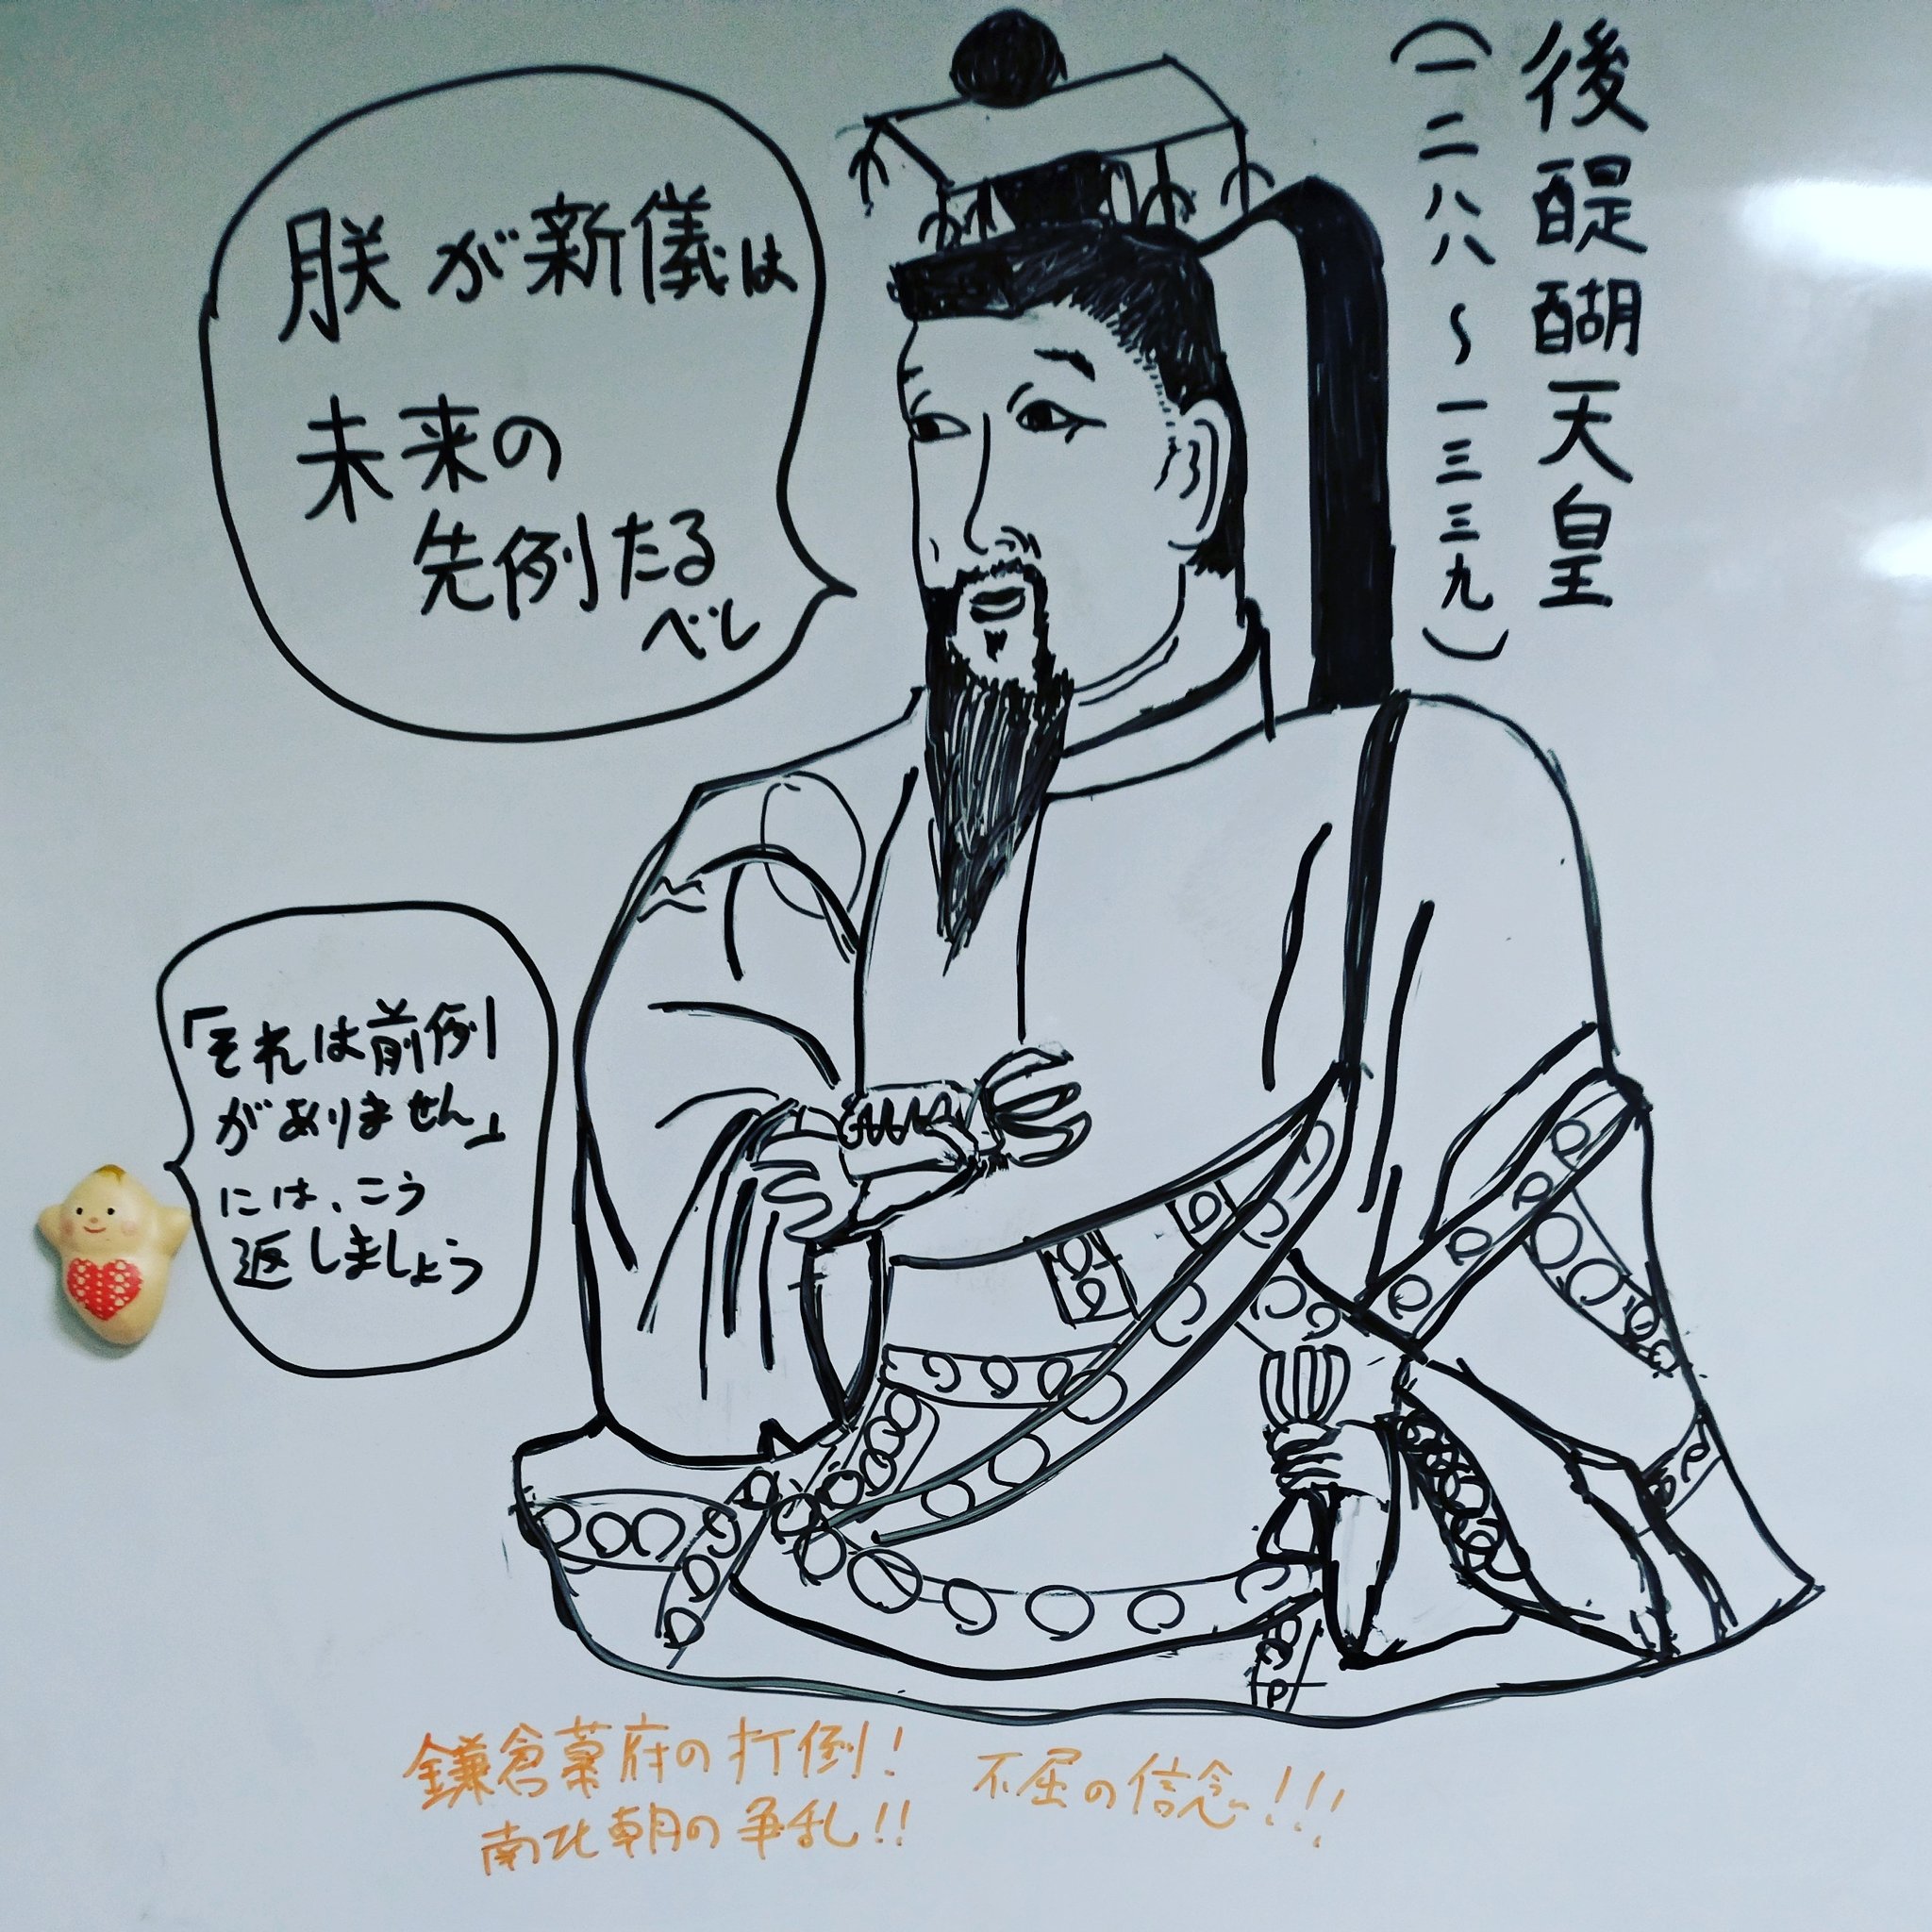 後醍醐天皇
（一二八八～一三三九）
朕が新儀は
未来の
先例たる
べし
「それは前例
がありません」
には、こう
返しましょう
鎌倉幕府の打倒！
南北朝の争乱!!
不屈の信念!!!